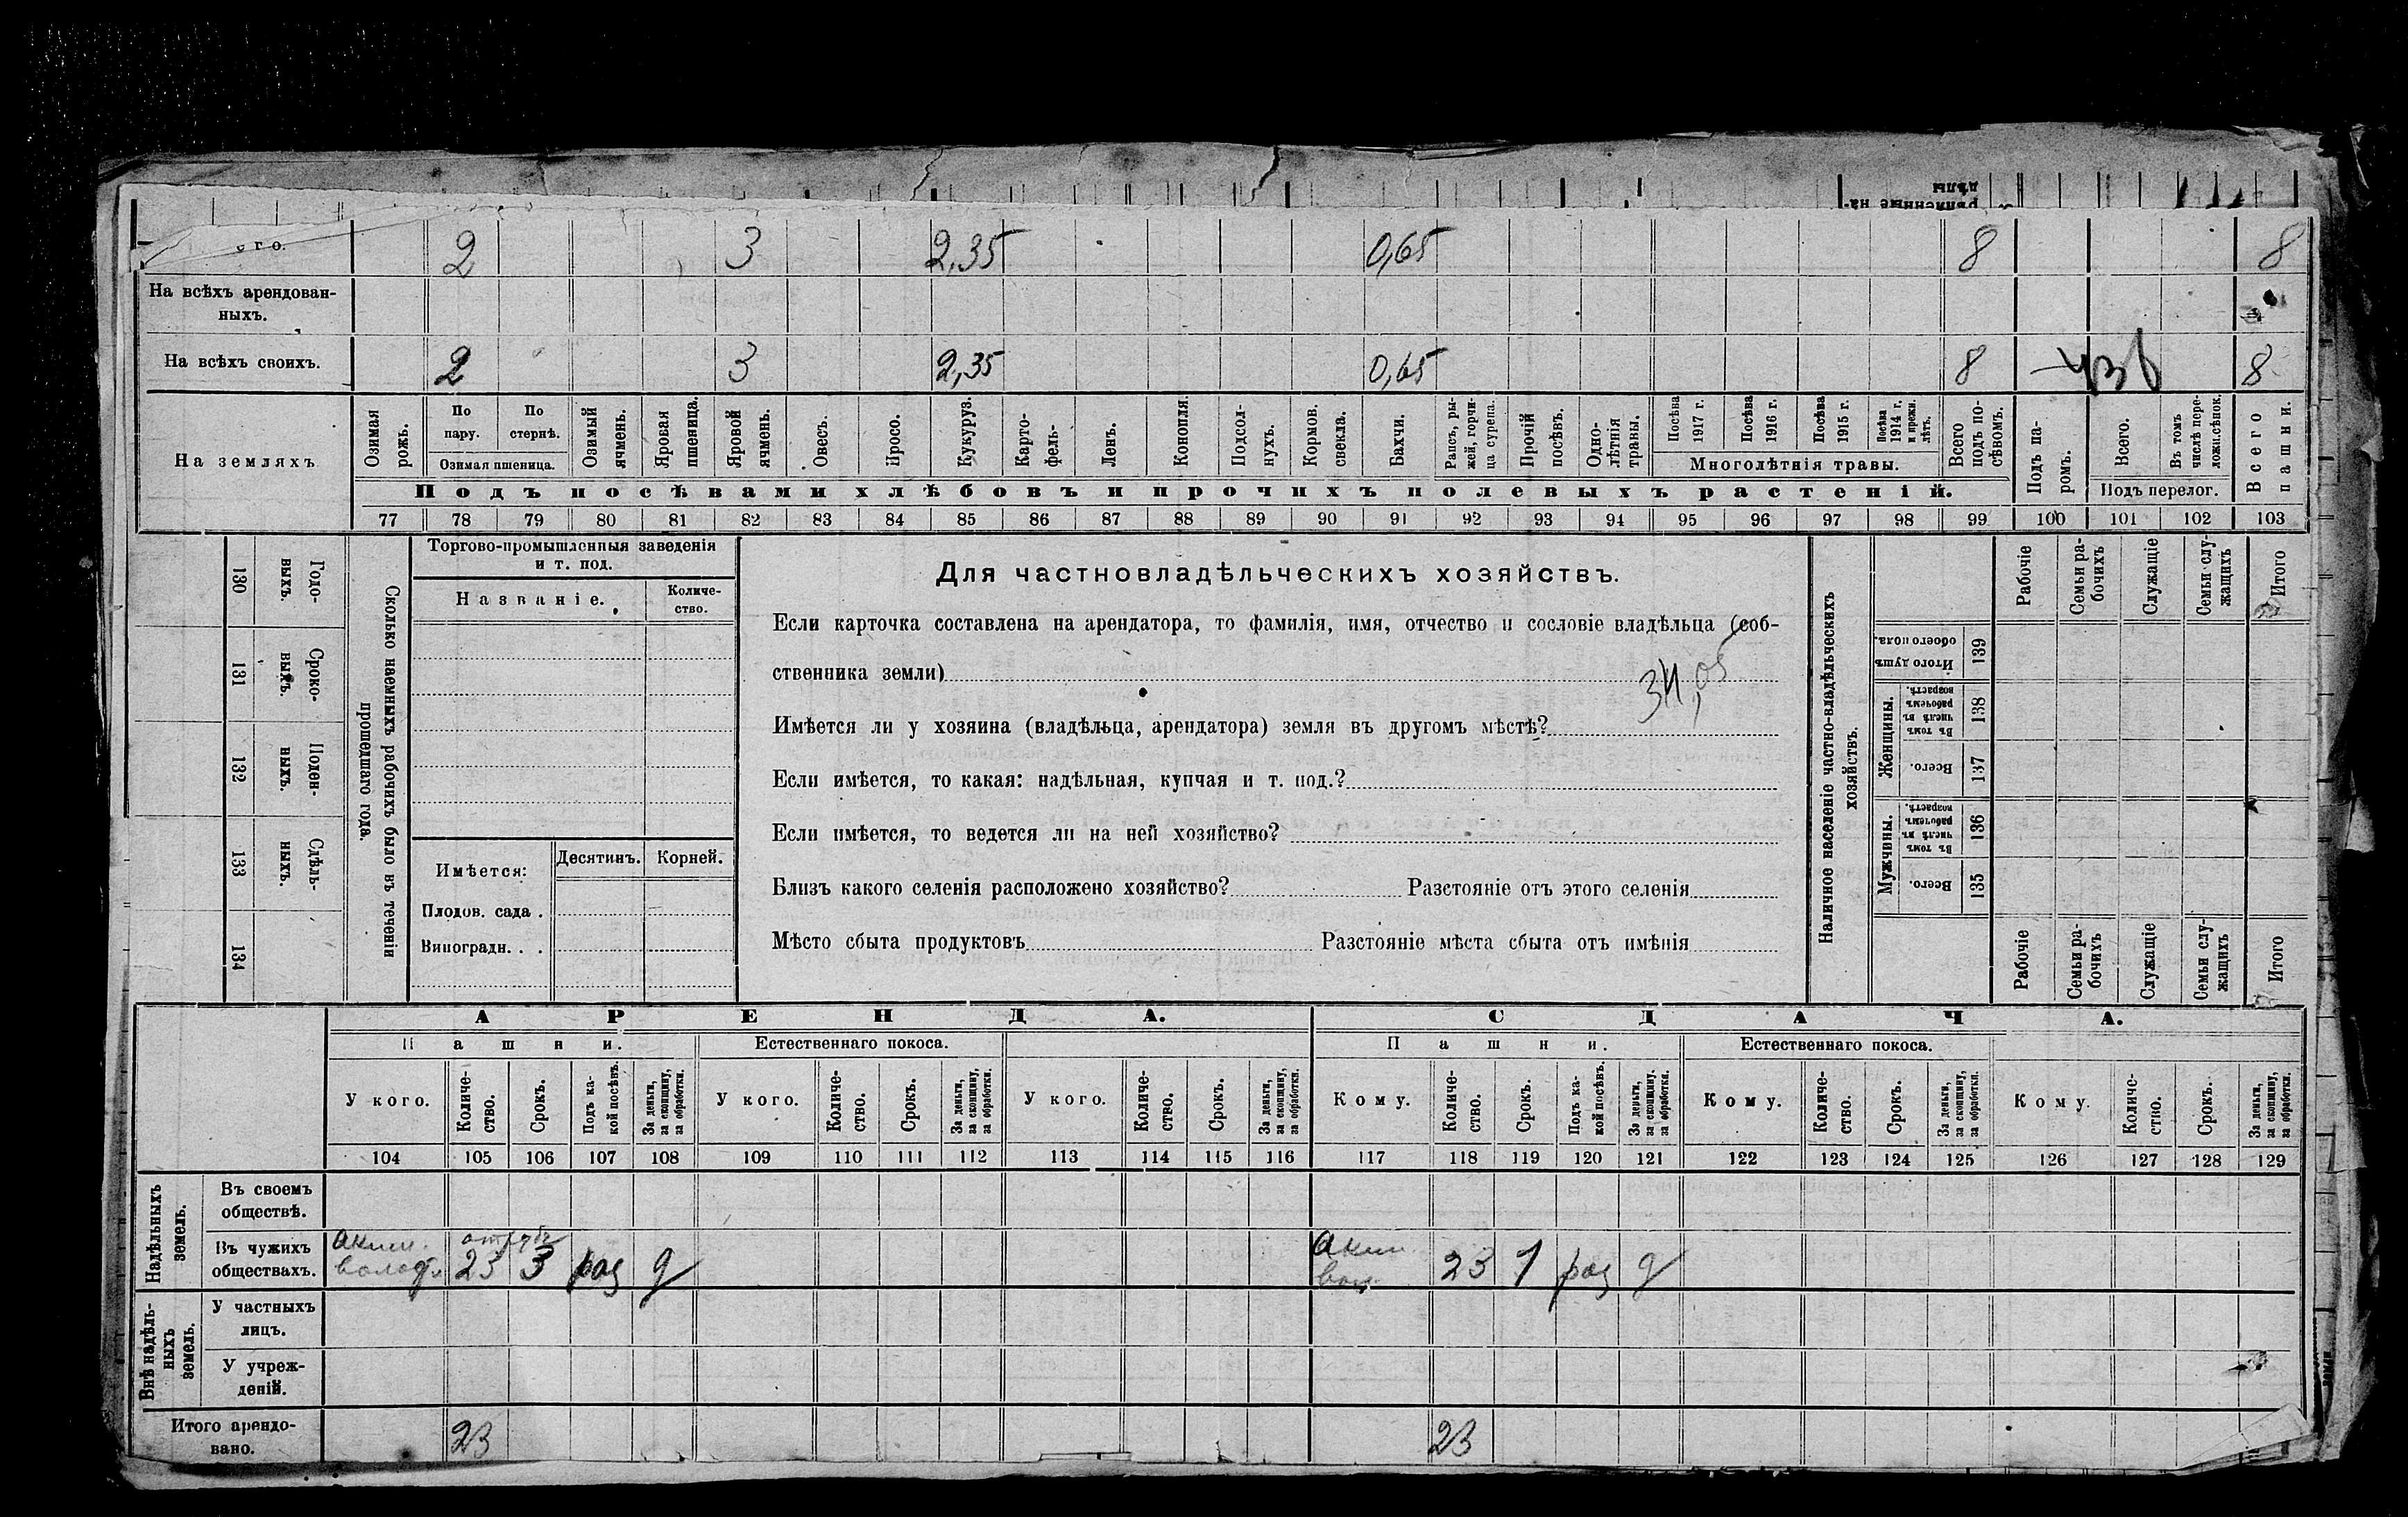 рѣпленные на-
дѣлы
его. 2 3 2,35 0,65 8 8
На всѣхъ арендован-
ныхъ.
На всѣхъ своихъ. 2 3 2,35 0,65 8 8
На земляхъ
Озимая рожь.
По пару.
По стернѣ.
Озимая пшеница.
Озимый ячмень.
Яровая пшеница.
Яровой ячмень.
Овесъ.
Просо.
Кукуруз.
Карто-
фель-
Ленъ.
Конопля.
Подсол-
нухъ.
Кормов. свекла.
Бахчи.
Рапсъ, ры-
жей, горчи-
ца сурепа.
Прочій посѣвъ.
Одно-
лѣтнія травы.
Посѣва 1917 г.
Посѣва 1916 г.
Посѣва 1915 г.
Посѣва 1914 г. и прежн. лѣтъ.
Многолѣтнія травы.
Всего подъ по-
сѣвомъ.
Подъ па-
ромъ.
Всего.
Въ томъ числѣ пере-
ложн.сѣнок.
Подъ перелог.
Всего пашни.
Подъ посѣвами хлѣбовъ и прочихъ полевыхъ растеній.
77 78 79 80 81 82 83 84 85 86 87 88 89 90 91 92 93 94 95 96 97 98 99 100 101 102 103
130 Годо-
выхъ.
131 Сроко-
выхъ.
132 Поден-
ныхъ.
133 Сдѣль-
ныхъ.
134
Сколько наемныхъ рабочихъ было въ теченіи
прошедшаго года.
Торгово-промышленныя заведенія
и т. под.
Названіе.
Количе-
ство.
Имѣется: Десятинъ. Корней.
Плодов. сада .
Виноградн. . .
Для частновладѣльческихъ хозяйствъ.
Если карточка составлена на арендатора, то фамилія, имя, отчество и сословіе владѣльца (соб-
ственника земли)
34,05
Имѣется ли у хозяина (владѣльца, арендатора) земля въ другомъ мѣстѣ?
Если имѣется, то какая: надѣльная, купчая и т. под.?
Если имѣется, то ведется ли на ней хозяйство?
Близъ какого селенія расположено хозяйство? Разстояніе отъ этого селенія
Мѣсто сбыта продуктовъ Разстояніе мѣста сбыта отъ имѣнія
Наличное населеніе частно-владѣльческихъ
хозяйствъ.
Рабочіе
Семьи ра-
бочихъ
Служащіе
Семьи слу-
жащихъ
Итого
Итого душъ обоего пола. 139
Женщины.
Въ томъ числѣ въ рабочемъ возрастѣ. 138
Всего. 137
Мужчины.
Въ томъ числѣ въ рабочемъ возрастѣ. 136
Всего. 135
Рабочіе
Семьи ра-
бочихъ
Служащіе
Семьи слу-
жащихъ
Итого
АРЕНДА. СДАЧА.
Пашни. Естественнаго покоса. Пашни. Естественнаго покоса.
У кого. Количе-
ство. Срокъ. Подъ ка-
кой посѣвъ. За деньги, за скопщину, за обработки.
У кого. Количе-
ство. Срокъ. За деньги, за скопщину, за обработки.
У кого. Количе-
ство. Срокъ. За деньги, за скопщину, за обработки.
Кому. Количе-
ство. Срокъ. Подъ ка-
кой посѣвъ. За деньги, за скопщину, за обработки.
Кому. Количе-
ство. Срокъ. За деньги, за скопщину, за обработки.
Кому. Количе-
ство. Срокъ. За деньги, за скопщину, за обработки.
104 105 106 107 108 109 110 111 112 113 114 115 116 117 118 119 120 121 122 123 124 125 126 127 128 129
Надѣльныхъ
земель.
Въ своемъ
обществѣ.
Въ чужихъ
обществахъ.
Аким. отруб
23 3 раз д
Аким
вол. 23 1 раз д
Внѣ надѣль-
ныхъ
земель.
У частныхъ
лицъ.
У учреж-
деній.
Итого арендо-
вано.
23 23